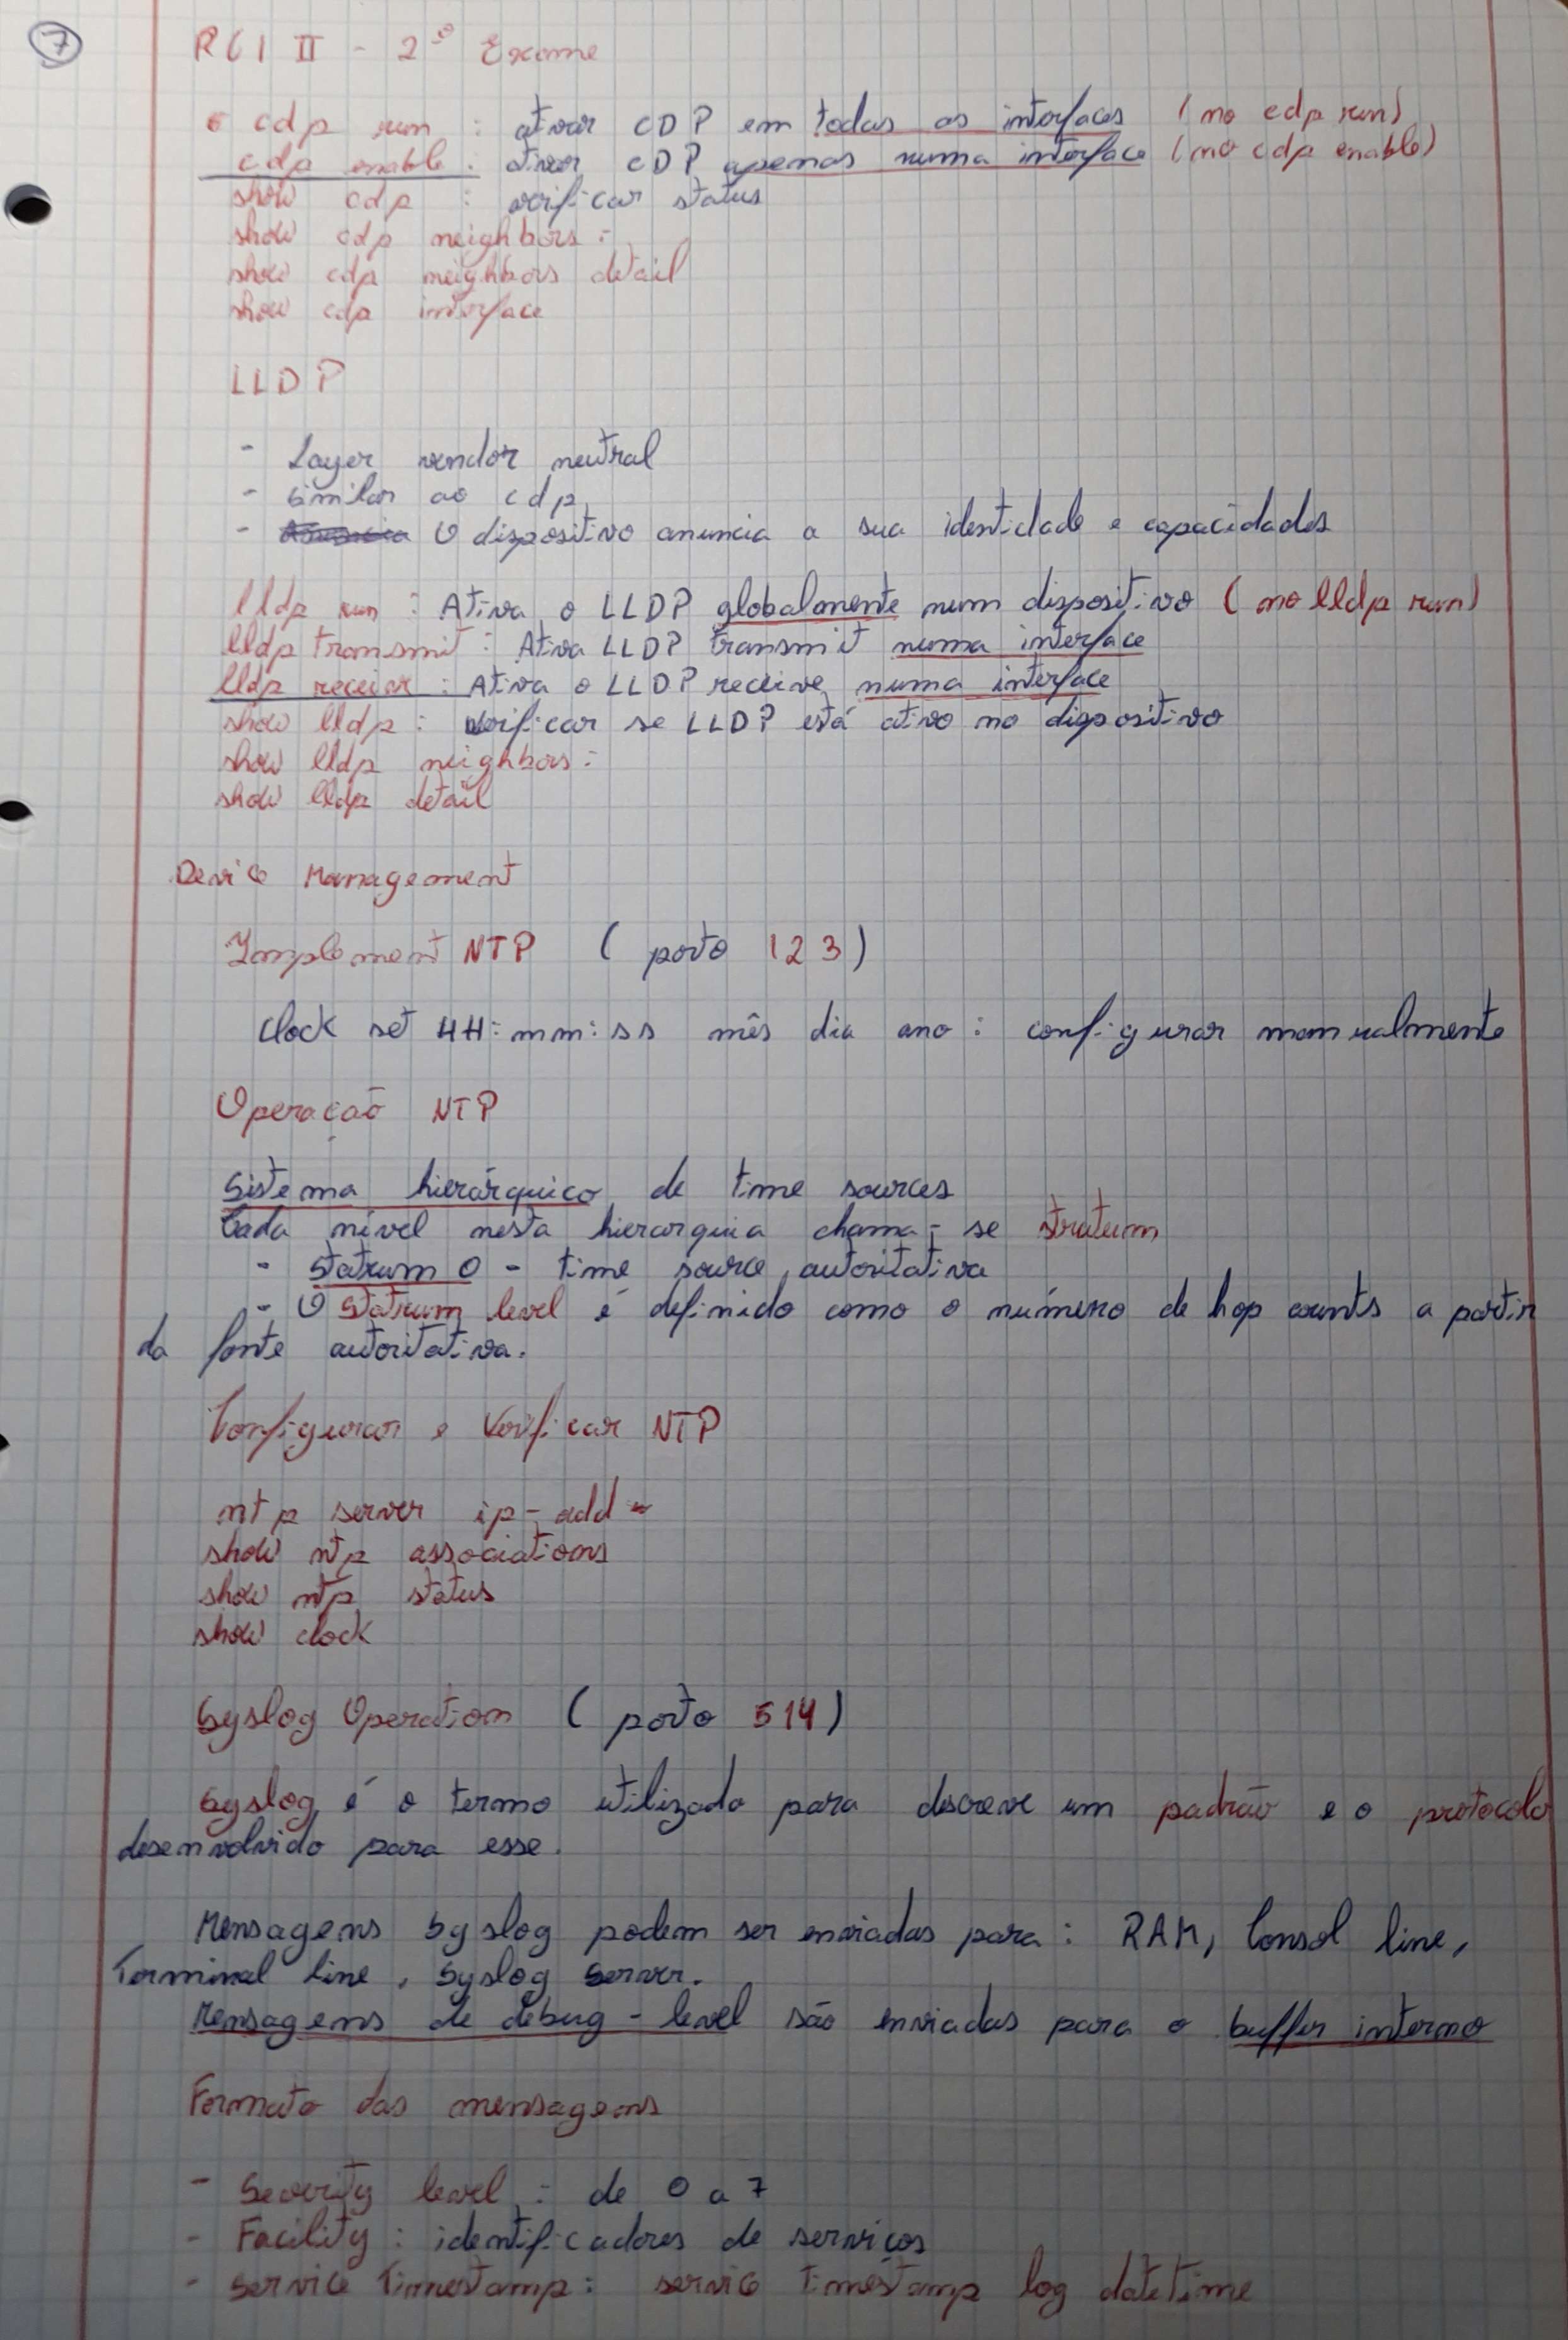 7
RCI II - 2º Exame
cdp run : ativar CDP em todas as interfaces (no cdp run)
cdp enable : ativar CDP apenas numa interface (no cdp enable)
show cdp : verificar status
show cdp neighbors :
show cdp neighbors detail
show cdp interface
LLDP
- Layer vendor neutral
- similar ao cdp
- O dispositivo anuncia a sua identidade e capacidades
lldp run : Ativa o LLDP globalmente num dispositivo (no lldp run)
lldp transmit : Ativa LLDP transmit numa interface
lldp receive : Ativa o LLDP receive numa interface
show lldp : verificar se LLDP está ativo no dispositivo
show lldp neighbors :
show lldp detail
Device Management
Implement NTP ( porto 123)
Clock set HH:mm:ss mês dia ano : configurar manualmente
Operação NTP
Sistema hierárquico de time sources
Cada nível nesta hierarquia chama-se stratum
- Statrum 0 - time source autoritativa
- O Statrum level é definido como o número de hop counts a partir
da fonte autoritativa.
Configurar e Verificar NTP
ntp server ip-add-
show ntp associations
show ntp status
show clock
Syslog Operation ( porto 514)
Syslog é o termo utilizado para descreve um padrão e o protocolo
desenvolvido para esse.
Mensagens Syslog podem ser enviadas para : RAM, Consol line,
Terminal line, Syslog Server.
Mensagens de debug-level são enviadas para o buffer interno
Formato das mensagens
- Severity level : de 0 a 7
- Facility : identificadores de serviços
- Service Timestamp : service timestamp log datetime